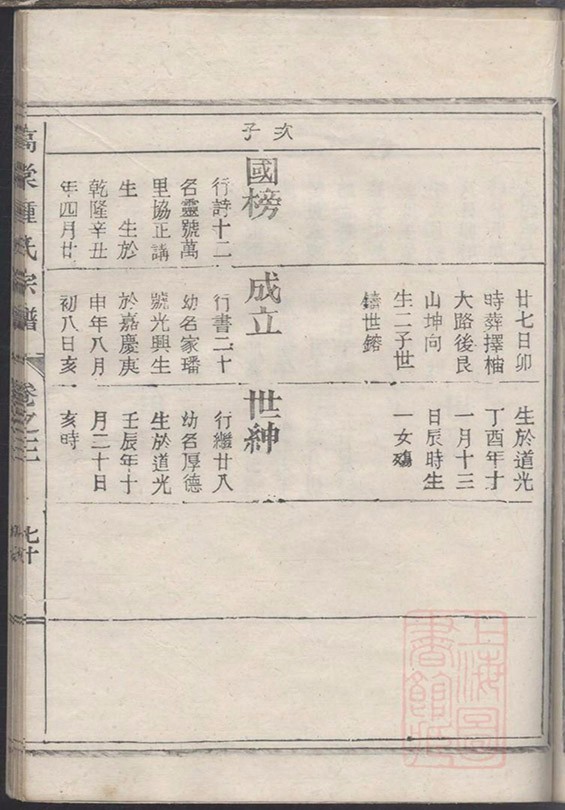 次子
廿七日卯
時葬擇柚
大路後艮
山坤向
生二子世
鐥世鎔
生於道光
丁酉年十
一月十三
日辰時生
一女殤
國榜
行詩十二
名靈號萬
里協正講
生 生於
乾隆辛丑
年四月廿
成立
行書二十
幼名家璠
號光興生
於嘉慶庚
申年八月
初八日亥
世紳
行繼廿八
幼名厚德
生於道光
壬辰年十
月二十日
亥時
鍾氏宗譜
卷之二
七十
上海圖
書館藏